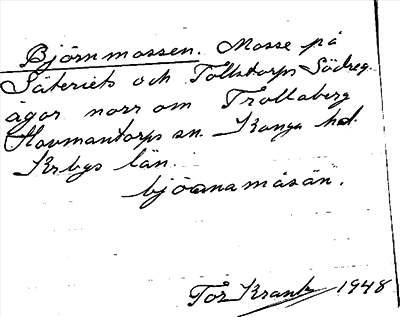 Björnmossen. Mosse på
Säteriets och Tollstorps Södreg.
ägor norr om Trollaberg
Hovmantorps sn. Konga hd.
Krbgs län.
bjöanamåsän.
Tor Krantz 1948